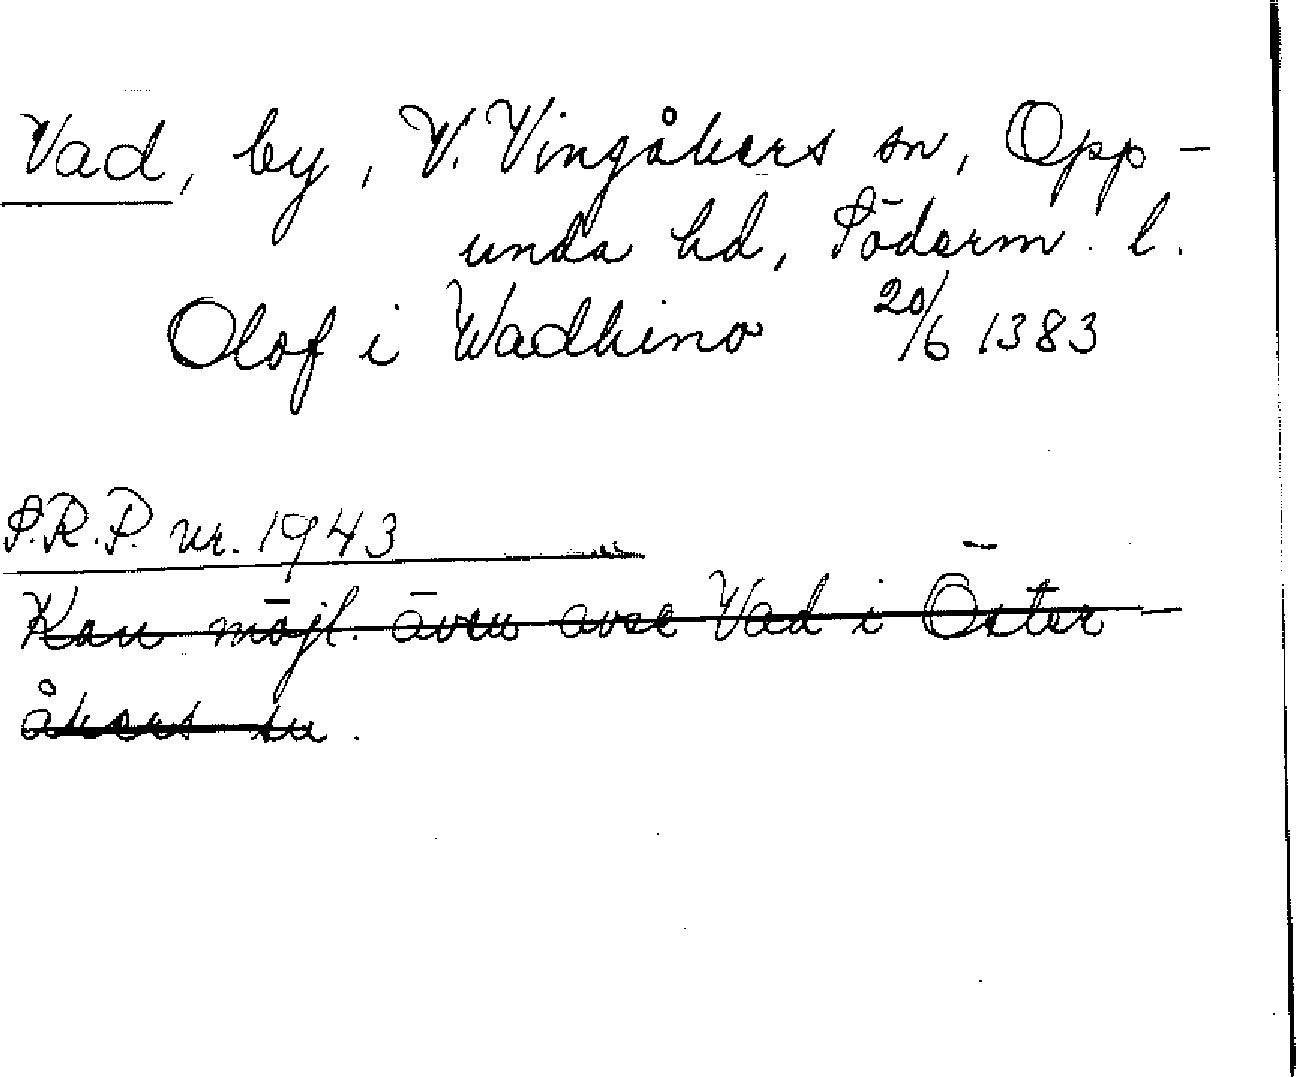 Vad, by, V. Vingåkers sn, Opp-
unda hd, Söderm. l.
Olof i Wadhino 20/6 1383
S.R.P. nr. 1943
Kan möjl. även avse Vad i Öster
åkers sn.